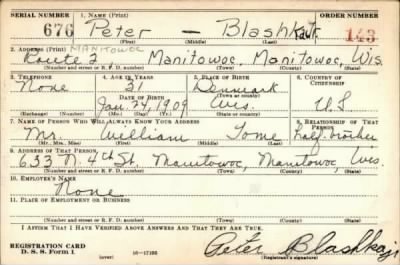 SERIAL NUMBER 1. NAME (Print) ORDER NUMBER
676 Peter — Blashka, Jr. 143
(First) (Middle) (Last)
2. ADDRESS (Print) MANITOWOC
Route 2 Manitowoc, Manitowoc, Wis.
(Number and street or R. F. D. number) (Town) (County) (State)
3. TELEPHONE 4. AGE IN YEARS 5. PLACE OF BIRTH 6. COUNTRY OF CITIZENSHIP
None 31 Denmark
DATE OF BIRTH (Town or county)
Jan. 24, 1909 Wis. U.S
(Exchange) (Number) (Mo.) (Day) (Yr.) (State or country)
7. NAME OF PERSON WHO WILL ALWAYS KNOW YOUR ADDRESS 8. RELATIONSHIP OF THAT PERSON
Mr. William Tome half-brother
(Mr., Mrs., Miss) (First) (Middle) (Last)
9. ADDRESS OF THAT PERSON
633 N. 4th St. Manitowoc, Manitowoc, Wis.
(Number and street or R. F. D. number) (Town) (County) (State)
10. EMPLOYER'S NAME
None
11. PLACE OF EMPLOYMENT OR BUSINESS
(Number and street or R. F. D. number) (Town) (County) (State)
I AFFIRM THAT I HAVE VERIFIED ABOVE ANSWERS AND THAT THEY ARE TRUE.
REGISTRATION CARD
D. S. S. Form 1 (over) 16—17105 Peter Blashka jr
(Registrant's signature)